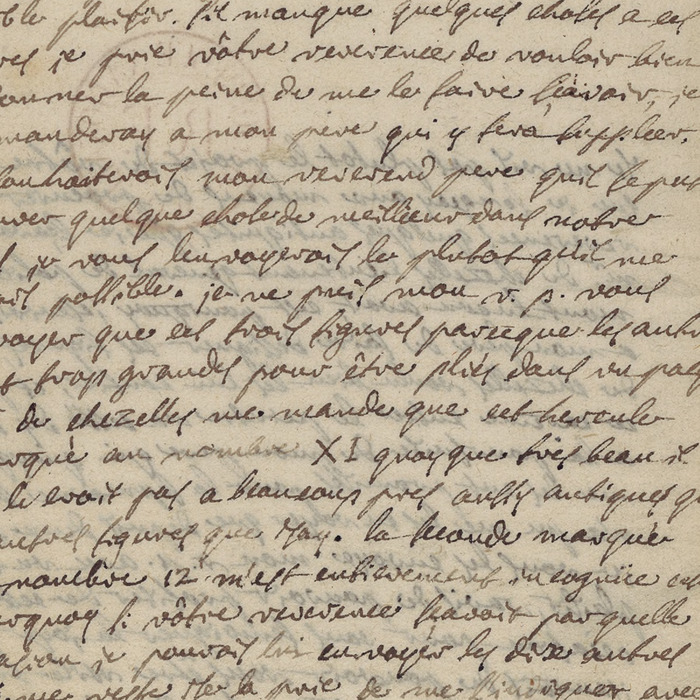 ble plaisir. s'il manque quelques choses a ces
je prie vôtre reverence de vouloir bien
donner la peine de me le faire sçavoir, je
manderay a mon pere qui y fera suppleer.
souhaiterois mon reverend pere quil se put
quelque chose de meilleur dans notre
je vous l'envoyerois le plutot qu'il me
possible. je ne puis mon r. p. vous
voyer que ces trois figures parceque les autr
t trop grandes pour être pliés dans un paq
de chezelles me mande que cet hercule
arqué au nombre XI quoyque tres beau il
le croit pas a beaucoup pres aussy antiques q
autres figures que j'ay. la seconde marquée
nombre 12 m'est entierement incognüe
quoy si vôtre reverence sçavoit par quelle
je pourois lui envoyer les dix autres
me reste je la prie de me l'indiquer, avec